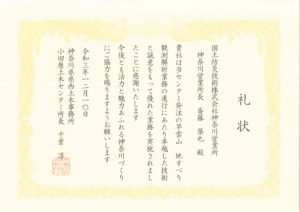 礼状
国土防災技術株式会社神奈川営業所
神奈川営業所長 斉藤 殿
貴社は当センター発注の早雲山 地すべり
観測解析業務の遂行にあたり卓越した技術
と誠意をもって優れた業務を実施されまし
たことに感謝いたします
今後とも活力と魅力あふれる神奈川づくり
にご協力を賜りますようお願いします
令和三年一二月一〇日
神奈川県県西土木事務所
小田原土木センター所長 千葉 淳